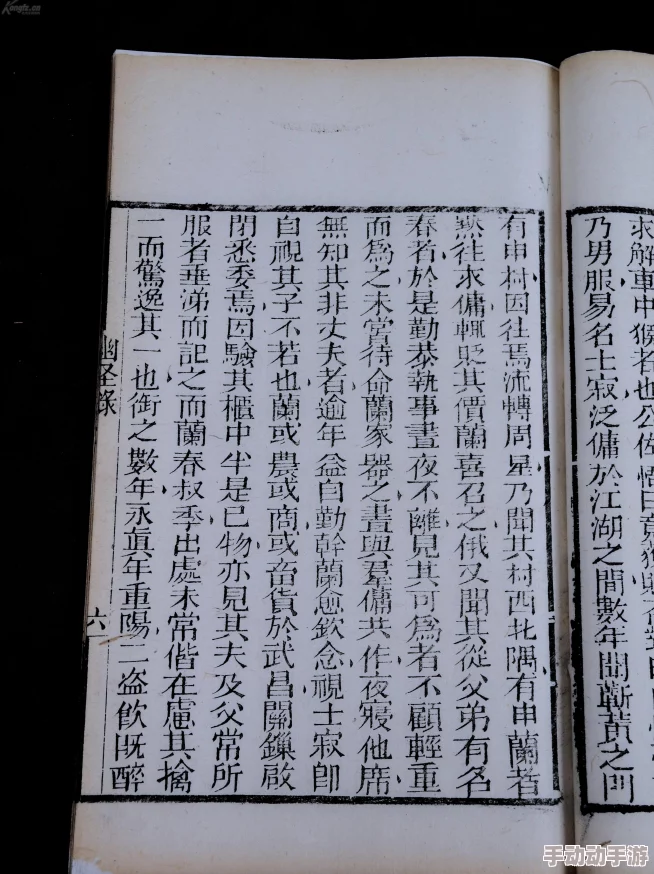 求解車中猴者也公佐
乃男服易名士寂泛傭於江湖之間數年聞蘄黃之間
有申村因往焉流轉周星乃聞其村西北隅有申蘭者
默往求傭輒貶其價蘭喜召之俄又聞其從父弟有名
春者於是勤恭執事晝夜不離見其可為者不顧輕重
而為之未嘗待命蘭家器之晝與羣傭共作夜寢他席
無知其非丈夫者逾年益自勤幹蘭愈欽念視士寂卽
自視其子不若也蘭或農或商或畜貨於武昌關鏁啟
閉悉委焉因驗其櫃中半是已物亦見其夫及父常所
服者垂涕而記之而蘭春叔季出處未常偕在慮其擒
一而驚逸其一也銜之數年永眞年重陽二盜飮旣醉
幽怪錄
六
Kongfz.cn
手动动手游